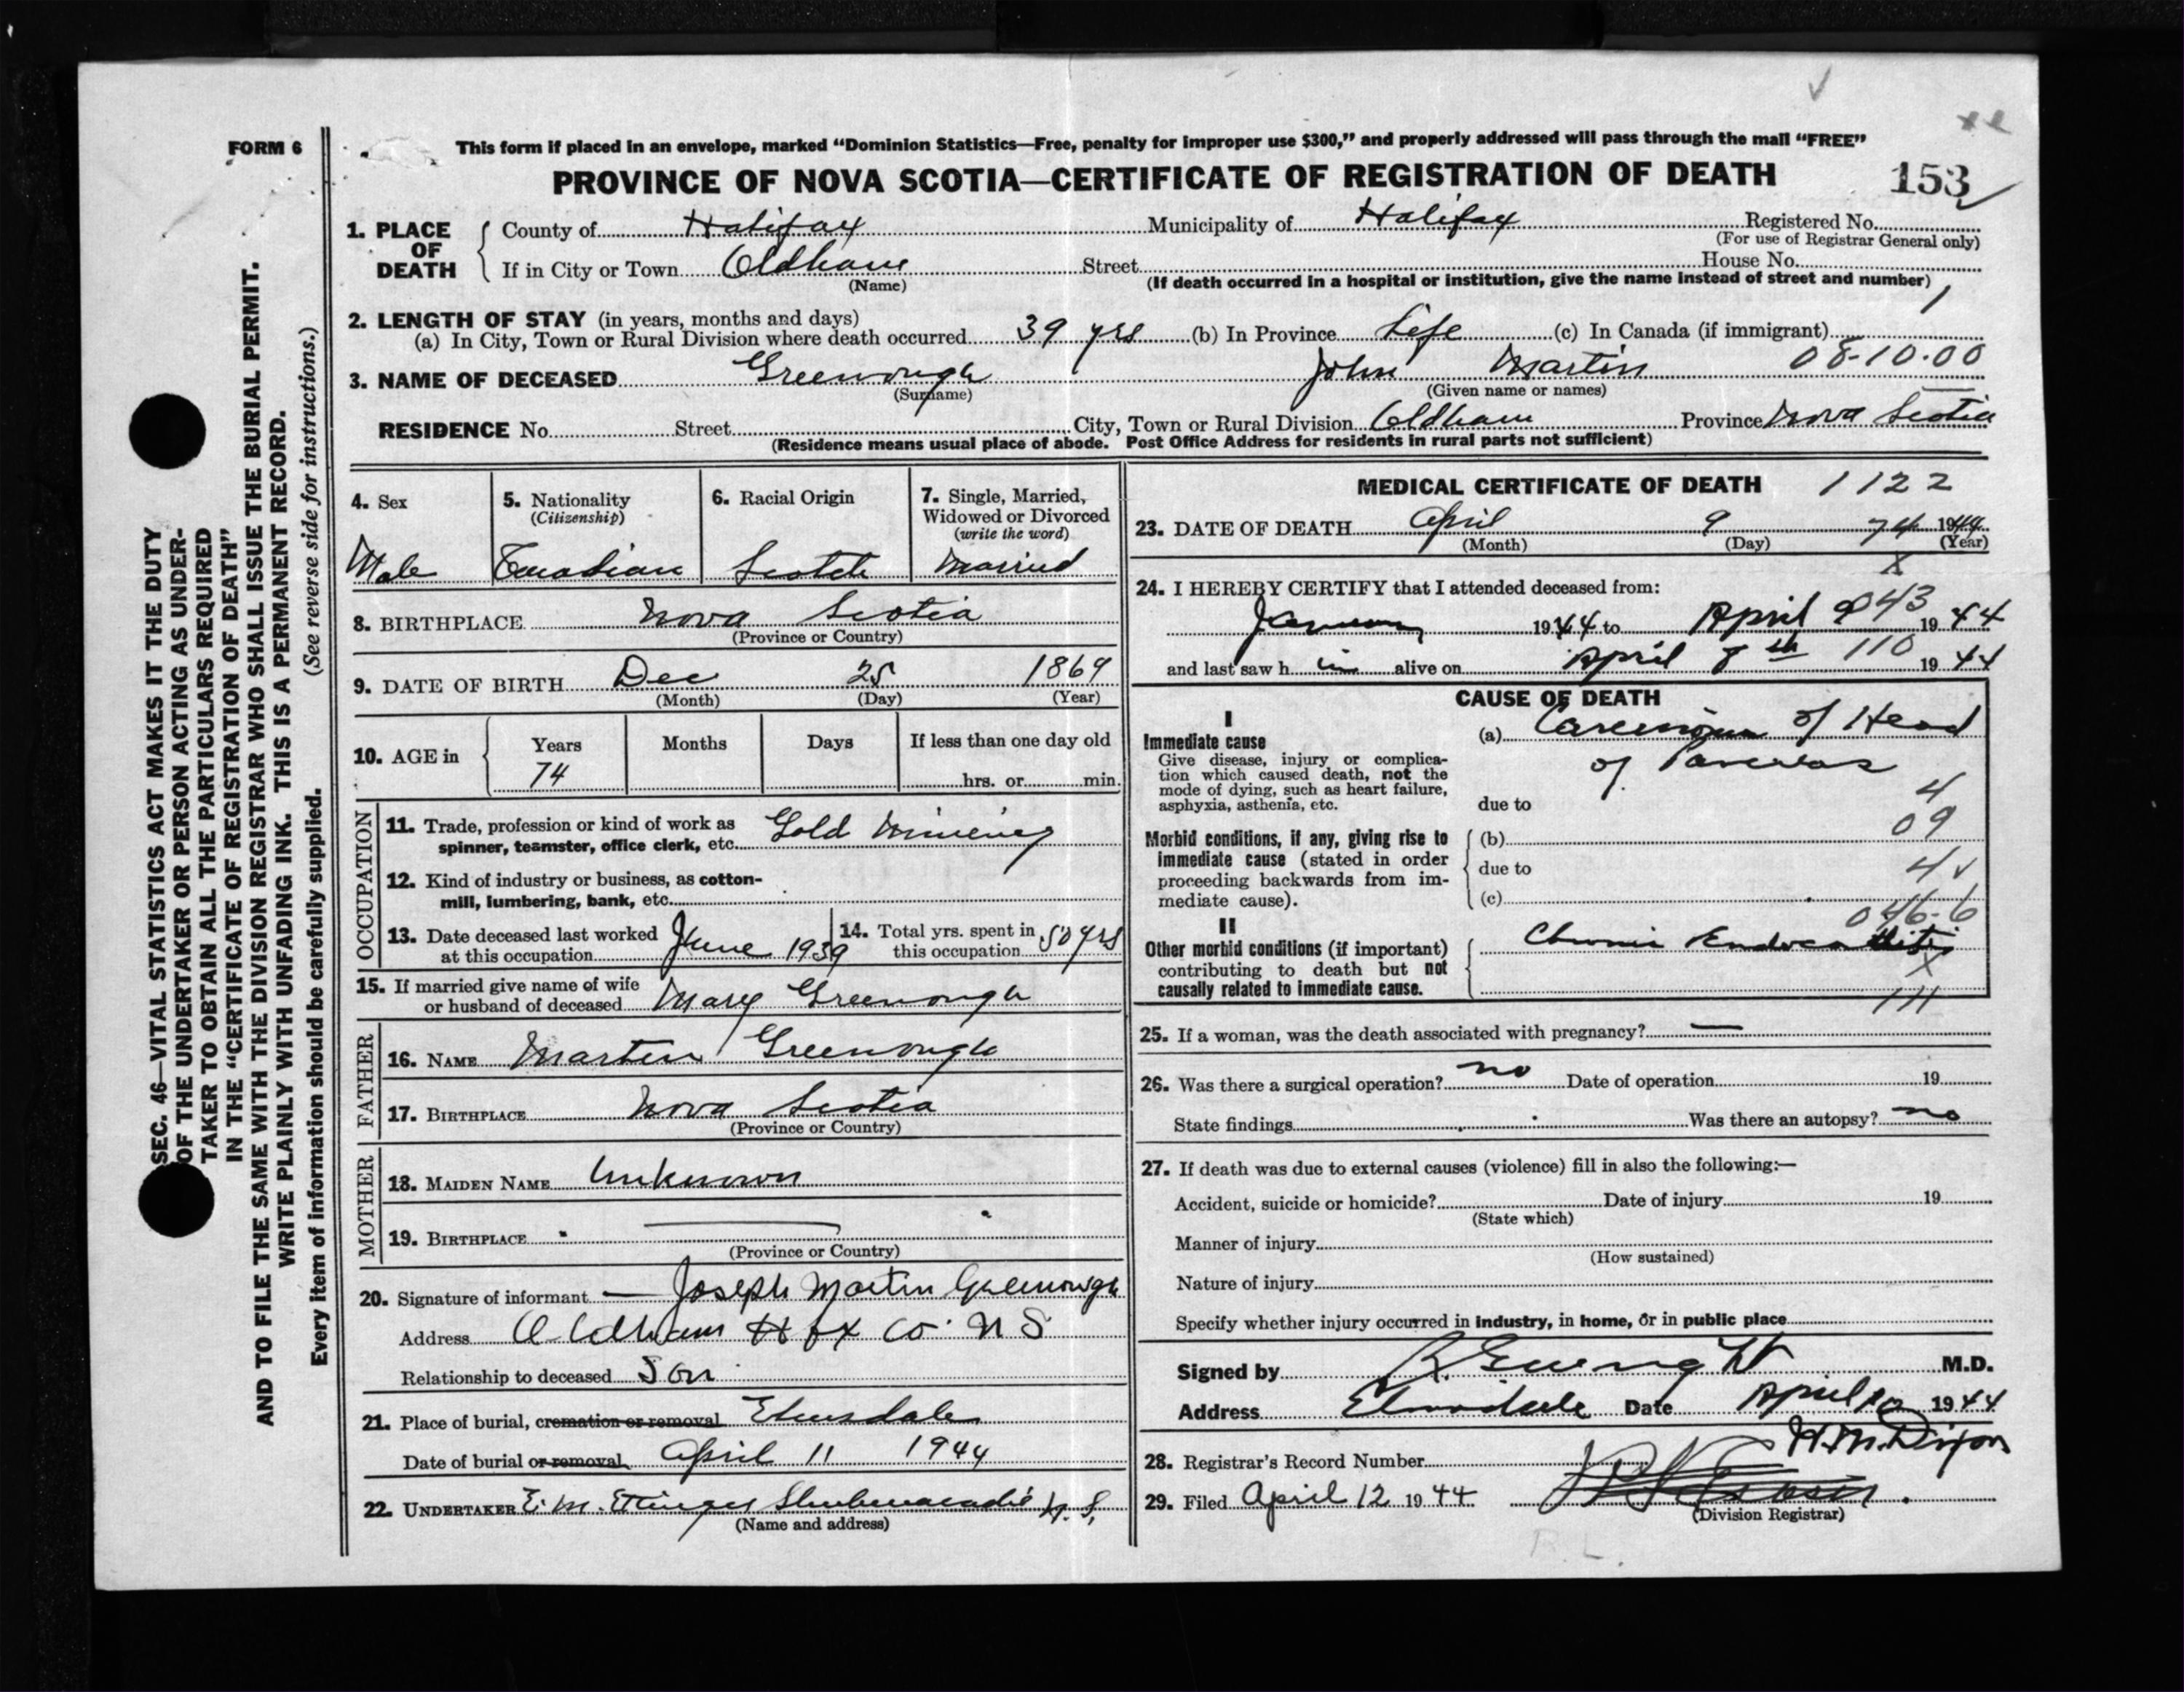 FORM 6
This form if placed in an envelope, marked "Dominion Statistics—Free, penalty for improper use $300," and properly addressed will pass through the mail "FREE"
PROVINCE OF NOVA SCOTIA—CERTIFICATE OF REGISTRATION OF DEATH
153
1. PLACE OF DEATH
County of Halifax Municipality of Halifax Registered No.
(For use of Registrar General only)
If in City or Town Oldham Street House No.
(Name) (If death occurred in a hospital or institution, give the name instead of street and number)
2. LENGTH OF STAY (in years, months and days)
(a) In City, Town or Rural Division where death occurred 39 yrs (b) In Province Life (c) In Canada (if immigrant)
3. NAME OF DECEASED Greenough John Martin 08-10-00
(Surname) (Given name or names)
RESIDENCE No. Street City, Town or Rural Division Oldham Province Nova Scotia
(Residence means usual place of abode. Post Office Address for residents in rural parts not sufficient)
4. Sex
Male
5. Nationality
(Citizenship)
Canadian
6. Racial Origin
Scotch
7. Single, Married,
Widowed or Divorced
(write the word)
Married
8. BIRTHPLACE Nova Scotia
(Province or Country)
9. DATE OF BIRTH Dec 25 1869
(Month) (Day) (Year)
10. AGE in
Years Months Days If less than one day old
74 hrs. or min.
OCCUPATION
11. Trade, profession or kind of work as
spinner, teamster, office clerk, etc. Gold Mining
12. Kind of industry or business, as cotton-
mill, lumbering, bank, etc.
13. Date deceased last worked
at this occupation June 1939
14. Total yrs. spent in
this occupation 50 yrs
15. If married give name of wife
or husband of deceased Mary Greenough
FATHER
16. NAME Martin Greenough
17. BIRTHPLACE Nova Scotia
(Province or Country)
MOTHER
18. MAIDEN NAME Unknown
19. BIRTHPLACE
(Province or Country)
20. Signature of informant Joseph Martin Greenough
Address Oldham Hfx Co. N S
Relationship to deceased Son
21. Place of burial, cremation or removal Elmsdale
Date of burial or removal April 11 1944
22. UNDERTAKER E. M. Ettinger Shubenacadie N. S.
(Name and address)
MEDICAL CERTIFICATE OF DEATH 1122
23. DATE OF DEATH April 9 74 1944
(Month) (Day) (Year)
24. I HEREBY CERTIFY that I attended deceased from:
January 1944 to April 9 043 1944
and last saw h im alive on April 8th 110 1944
CAUSE OF DEATH
I
Immediate cause
Give disease, injury or complica-
tion which caused death, not the
mode of dying, such as heart failure,
asphyxia, asthenia, etc.
(a) Carcinoma of Head
of Pancreas
4
due to
09
Morbid conditions, if any, giving rise to
immediate cause (stated in order
proceeding backwards from im-
mediate cause).
(b)
due to
(c)
046-6
II
Other morbid conditions (if important)
contributing to death but not
causally related to immediate cause.
Chronic Endocarditis
X
111
25. If a woman, was the death associated with pregnancy? —
26. Was there a surgical operation? no Date of operation 19
State findings Was there an autopsy? no
27. If death was due to external causes (violence) fill in also the following:—
Accident, suicide or homicide? Date of injury 19
(State which)
Manner of injury
(How sustained)
Nature of injury
Specify whether injury occurred in industry, in home, or in public place
Signed by M.D.
Address Elmsdale Date April 10 1944
28. Registrar's Record Number H.M. Dixon
29. Filed April 12 1944
(Division Registrar)
R.L.
SEC. 46—VITAL STATISTICS ACT MAKES IT THE DUTY
OF THE UNDERTAKER OR PERSON ACTING AS UNDER-
TAKER TO OBTAIN ALL THE PARTICULARS REQUIRED
IN THE "CERTIFICATE OF REGISTRATION OF DEATH"
AND TO FILE THE SAME WITH THE DIVISION REGISTRAR WHO SHALL ISSUE THE BURIAL PERMIT.
WRITE PLAINLY WITH UNFADING INK. THIS IS A PERMANENT RECORD.
Every item of information should be carefully supplied. (See reverse side for instructions.)